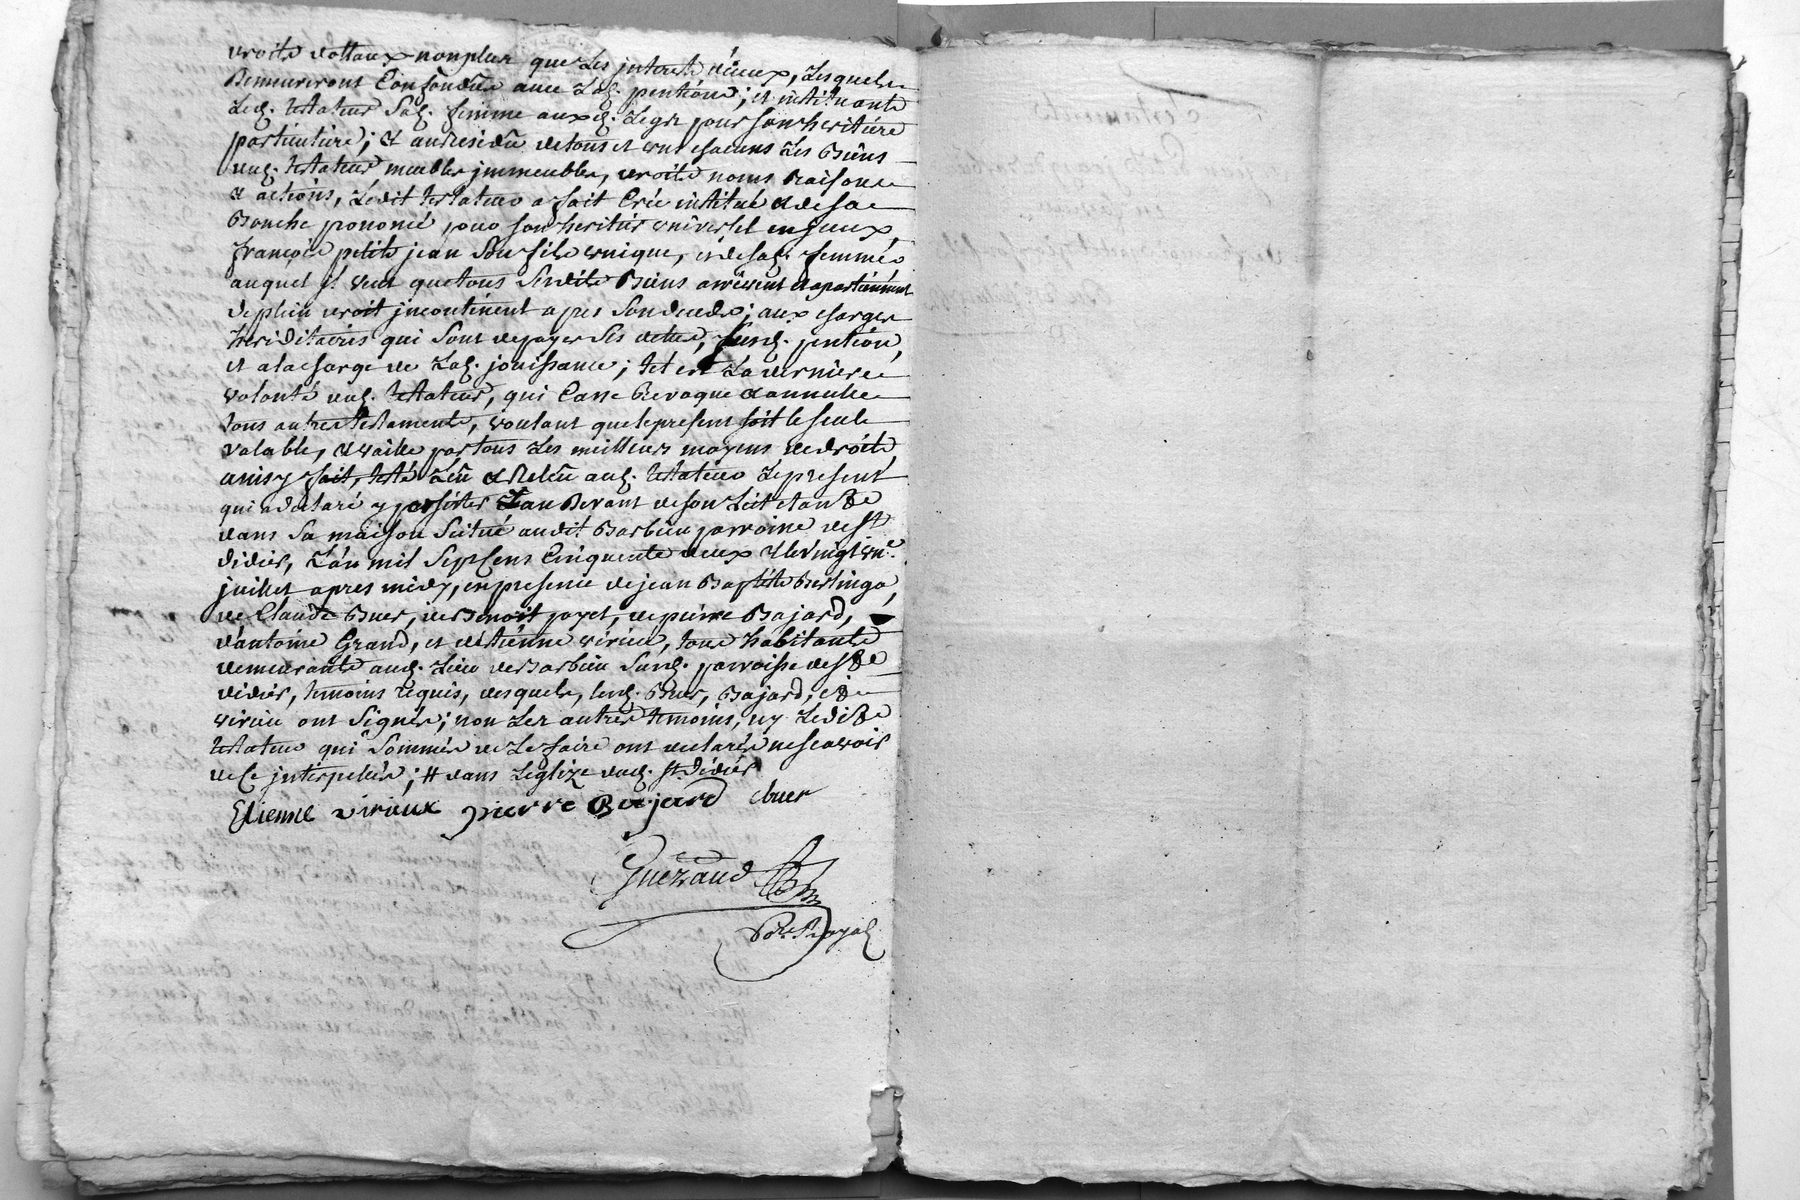 droits dottaux nonplus que les interets d'iceux, lesquels
demeureront confondus avec lad. pention; et instituant
led. testateur sad. femme auxd. legz pour son heritiere
particuliere; & au residu de tous et uns chacuns les biens
dud. testateur meubles immeubles, droits noms raisons
& actions, ledit testateur a fait créé institué & de sa
bouche prononcé pour son heritier universel
françois petit jean son fils unique, et de sad. femme
auquel il veut que tous sesdits biens arrivent & apartiennent
de plein droit incontinent apres son deceds; aux charges
hereditaires qui sont de payer ses dettes, susd. pention,
et a la charge de lad. jouissance; tel est la derniere
volonté dud. testateur, qui casse revoque & annulle
tous autres testaments, voulant que le present soit le seul
valable, & vaille par tous les meilleurs moyens de droit,
ainsy fait, testé leu & releu aud. testateur le present
qui a declaré y persister au devant de son lict étant
dans sa maison scitué audit Barbieu parroisse de st
didier, l'an mil sept cens cinquante deux & le vingt un.e
juillet apres midy, en presence de jean Baptiste Berlinga,
de Claude Buer, de Benoit payet, de pierre Bajard,
d'antoine Grand, et d'etienne virieu, tous habitants
demeurants aud. lieu de Barbieu susd. parroisse de st
didier, temoins requis, desquels, lesd. Buer, Bajard, et
virieu ont signés; non les autres temoins, ny ledit
testateur qui sommés de le faire ont declarés ne scavoir
de ce interpellés; # dans leglize dud. st. didier
Etienne virieux pierre Bajard cbuer
Guerraud
No.re Royal